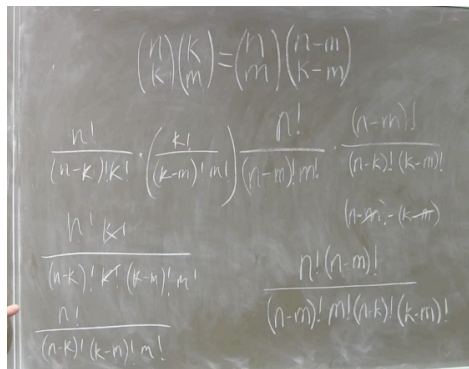 (n k)(k m) = (n m)(n-m k-m)
n!/((n-k)!k!) · (k!/((k-m)!m!)) n!/((n-m)!m!) · (n-m)!/((n-k)!(k-m)!)
(n-m)-(k-m)
n!k!/((n-k)!k!(k-m)!m!)
n!(n-m)!/((n-m)!m!(n-k)!(k-m)!)
n!/((n-k)!(k-m)!m!)